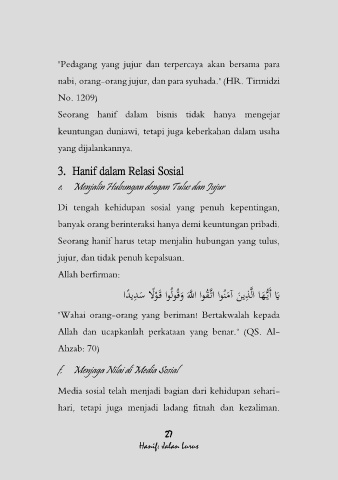 "Pedagang yang jujur dan terpercaya akan bersama para
nabi, orang-orang jujur, dan para syuhada." (HR. Tirmidzi
No. 1209)
Seorang hanif dalam bisnis tidak hanya mengejar
keuntungan duniawi, tetapi juga keberkahan dalam usaha
yang dijalankannya.
3. Hanif dalam Relasi Sosial
e. Menjalin Hubungan dengan Tulus dan Jujur
Di tengah kehidupan sosial yang penuh kepentingan,
banyak orang berinteraksi hanya demi keuntungan pribadi.
Seorang hanif harus tetap menjalin hubungan yang tulus,
jujur, dan tidak penuh kepalsuan.
Allah berfirman:
يَا أَيُّهَا الَّذِينَ آمَنُوا اتَّقُوا اللَّهَ وَقُولُوا قَوْلًا سَدِيدًا
"Wahai orang-orang yang beriman! Bertakwalah kepada
Allah dan ucapkanlah perkataan yang benar." (QS. Al-
Ahzab: 70)
f. Menjaga Nilai di Media Sosial
Media sosial telah menjadi bagian dari kehidupan sehari-
hari, tetapi juga menjadi ladang fitnah dan kezaliman.
27
Hanif; Jalan Lurus